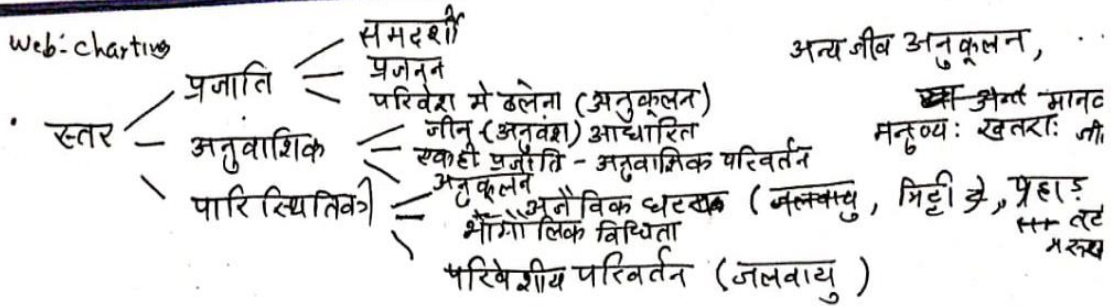 Web: Charting
समदर्शी
प्रजाति
प्रजनन
परिवेश मे ढलेना (अनुकूलन)
स्तर
अनुवाशिक
जीन (अनुवंश) आधारित
एकही प्रजाति - अनुवाशिक परिवर्तन
पारिस्थितिकी
अनुकूलन
अजैविक घटक (जलवायु, मिट्टी
भौगोलिक विविधता
परिवेशीय परिवर्तन (जलवायु)
अन्य जीव अनुकूलन,
मानव
मनुष्य: खतरा: